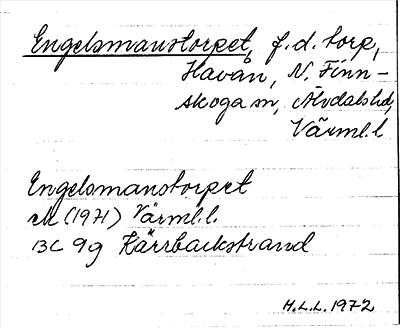 Engelsmanstorpet, f.d. torp,
Havån, N. Finn-
skoga sn, Älvdals hd,
Värml. l
Engelsmanstorpet
eM (1971) Värml. l.
13C 9g Kärrbackstrand
H.L.L. 1972